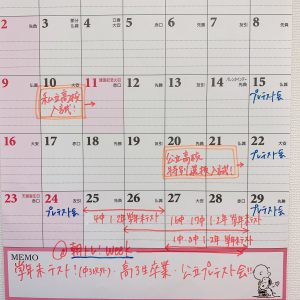 2 先勝 3 節分 仏滅 4 立春 大安 5 赤口 6 先勝 7 友引 8 先負
9 仏滅 10 大安 11 建国記念の日 赤口 12 先勝 13 友引 14 バレンタインデー 先負 15 仏滅
私立高校
入試!
プレテスト会
16 大安 17 赤口 18 先勝 19 友引 20 先負 21 仏滅 22 大安
公立高校
特別選抜入試!
プレテスト会
23 天皇誕生日 赤口 24 友引 25 先負 26 仏滅 27 大安 28 赤口 29 先勝
プレテスト会
1・2年 学年末テスト
1・2年 学年末テスト
1・2年 学年末テスト
プレテスト会
朝トレ week
MEMO
学年末テスト! 高3生卒業・公立プレテスト会!!